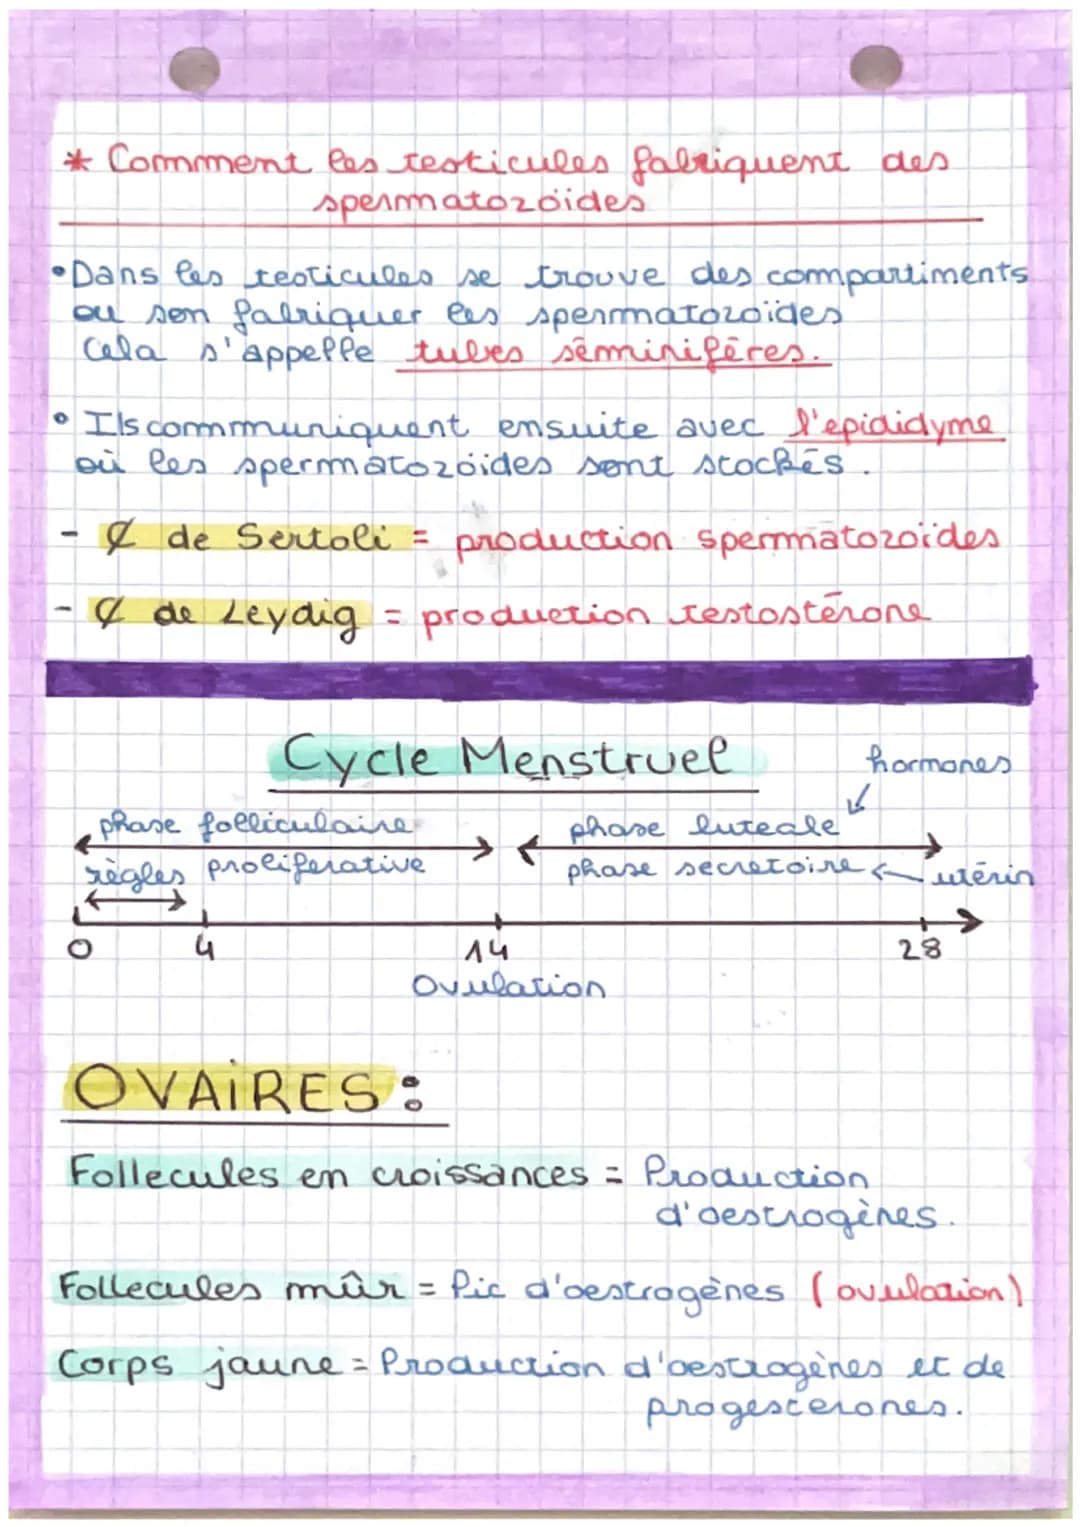 * Comment les testicules fabriquent des
spermatozoïdes
•Dans les testicules se trouve des compartiments
ou son fabriquer les spermatozoïdes
Cela s'appelle tubes séminifères.
• Ils communiquent ensuite avec l'epididyme
où les spermatozoïdes sont stockés.
- ₵ de Sertoli = production spermatozoïdes
- ₵ de Leydig = production testostérone
Cycle Menstruel
hormones
phase folliculaire phase luteale
règles proliferative phase secretoire utérin
0 4 14 28
Ovulation
OVAIRES :
Follecules en croissances = Production
d'oestrogènes.
Follecules mûr = Pic d'oestrogènes (ovulation)
Corps jaune = Production d'oestrogènes et de
progesterones.